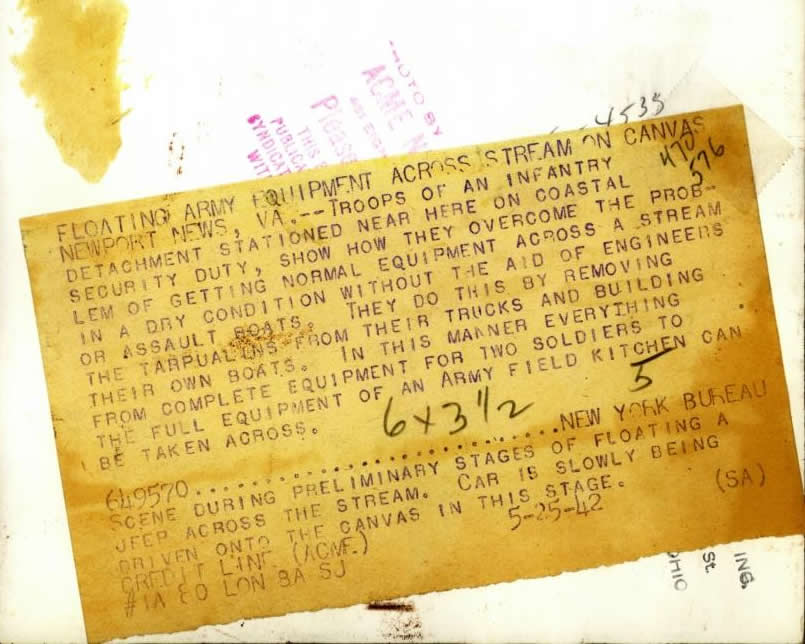 4535
PHOTO BY
ACME N
Please
THIS
PUBLICA
SYNDICAT
WIT
FLOATING ARMY EQUIPMENT ACROSS STREAM ON CANVAS
476
576
NEWPORT NEWS, VA.--TROOPS OF AN INFANTRY
DETACHMENT STATIONED NEAR HERE ON COASTAL
SECURITY DUTY, SHOW HOW THEY OVERCOME THE PROB-
LEM OF GETTING NORMAL EQUIPMENT ACROSS A STREAM
IN A DRY CONDITION WITHOUT THE AID OF ENGINEERS
OR ASSAULT BOATS. THEY DO THIS BY REMOVING
THE TARPUALINS FROM THEIR TRUCKS AND BUILDING
THEIR OWN BOATS. IN THIS MANNER EVERYTHING
FROM COMPLETE EQUIPMENT FOR TWO SOLDIERS TO
THE FULL EQUIPMENT OF AN ARMY FIELD KITCHEN CAN
BE TAKEN ACROSS.
6 x 3 1/2
5
649570..............................NEW YORK BUREAU
SCENE DURING PRELIMINARY STAGES OF FLOATING A
JEEP ACROSS THE STREAM. CAR IS SLOWLY BEING
DRIVEN ONTO THE CANVAS IN THIS STAGE.
CREDIT LINE (ACME) 5-25-42 (SA)
#1A CO LON BA SJ
ING.
St.
OHIO